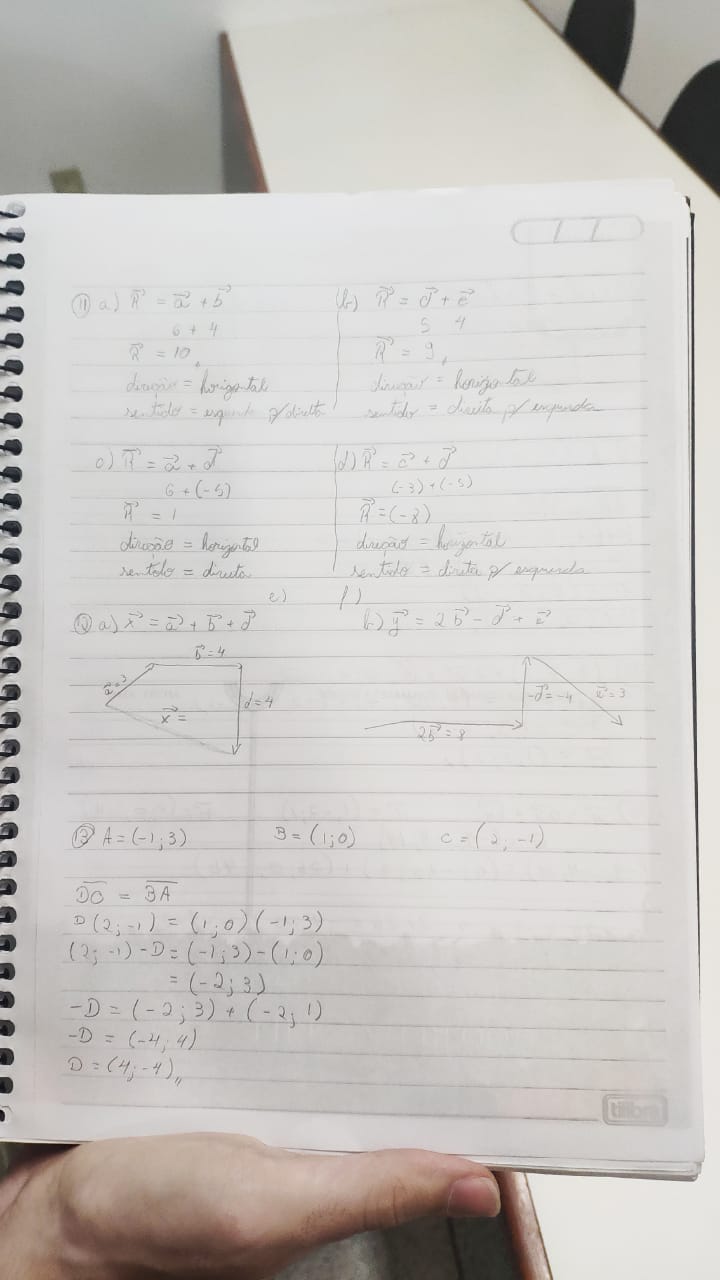 11 a) R = a + b
6 + 4
R = 10
direção = horizontal
sentido = esquerda p/ direita
b) R = d + e
5 4
R = 9
direção = horizontal
sentido = direita p/ esquerda
c) R = a + d
6 + (-5)
R = 1
direção = horizontal
sentido = direita
d) R = c + d
(-3) + (-5)
R = (-8)
direção = horizontal
sentido = direita p/ esquerda
e) f)
12 a) x = a + b + d
b = 4
a = 3
d = 4
x =
b) y = 2b - d + c
-d = -4
= 3
2b = 8
13 A = (-1; 3) B = (1; 0) C = (2; -1)
= BA
D (2; -1) = (1; 0) (-1; 3)
(2; -1) - D = (-1; 3) - (1; 0)
= (-2; 3)
-D = (-2; 3) + (-2; 1)
-D = (-4; 4)
D = (4; -4)
tilibra